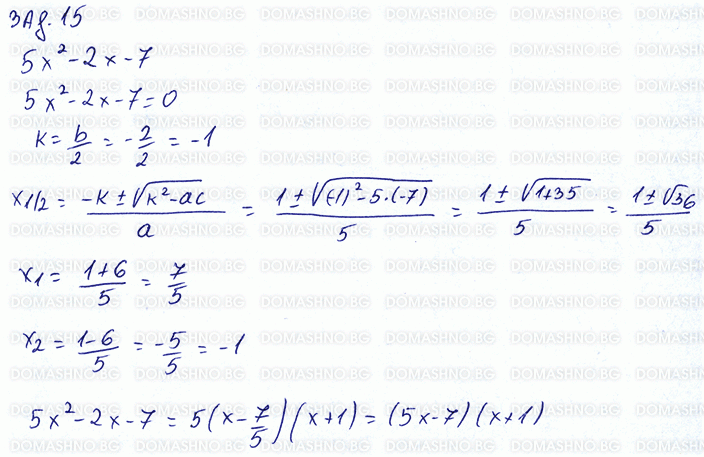 Зад. 15
5x² - 2x - 7
5x² - 2x - 7 = 0
k = b/2 = -2/2 = -1
x1/2 = (-k ± √(k² - ac))/a = (1 ± √((-1)² - 5.(-7)))/5 = (1 ± √(1+35))/5 = (1 ± √36)/5
x1 = (1+6)/5 = 7/5
x2 = (1-6)/5 = -5/5 = -1
5x² - 2x - 7 = 5(x - 7/5)(x+1) = (5x-7)(x+1)
DOMASHNO.BG